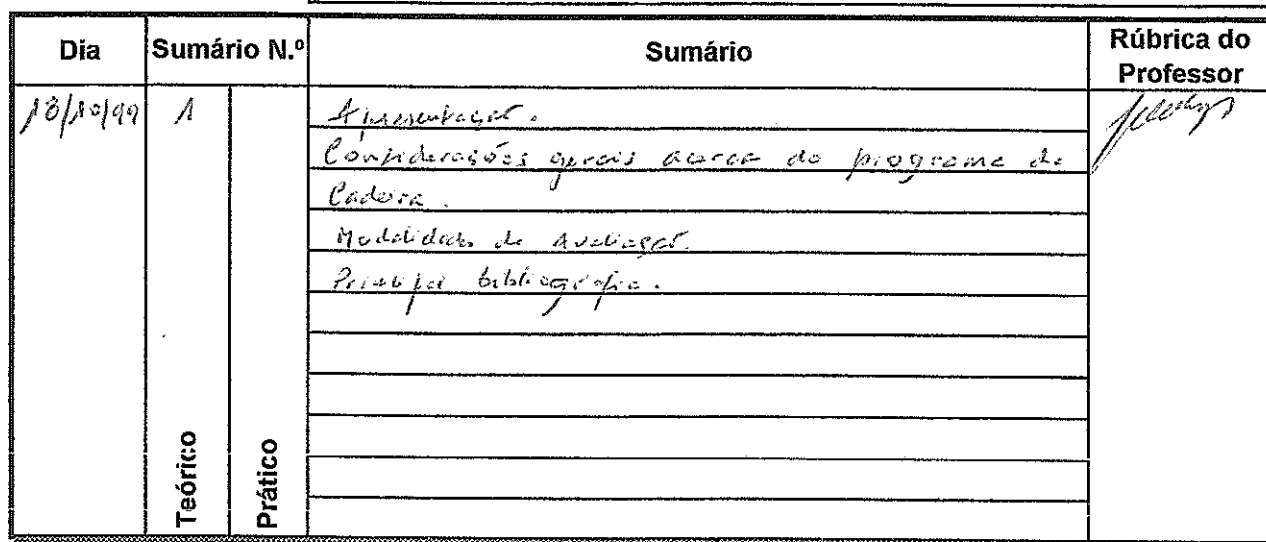 Dia Sumário N.º Sumário Rúbrica do
Professor
18/10/99 1 Apresentação.
Considerações gerais acerca do programa da
Cadeira.
Modalidades de Avaliação.
Principal bibliografia.
Teórico Prático